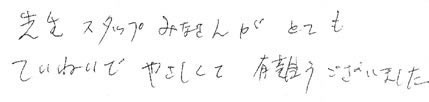 先生 スタッフ みなさんが とても
ていねいで やさしくて 有難うございました